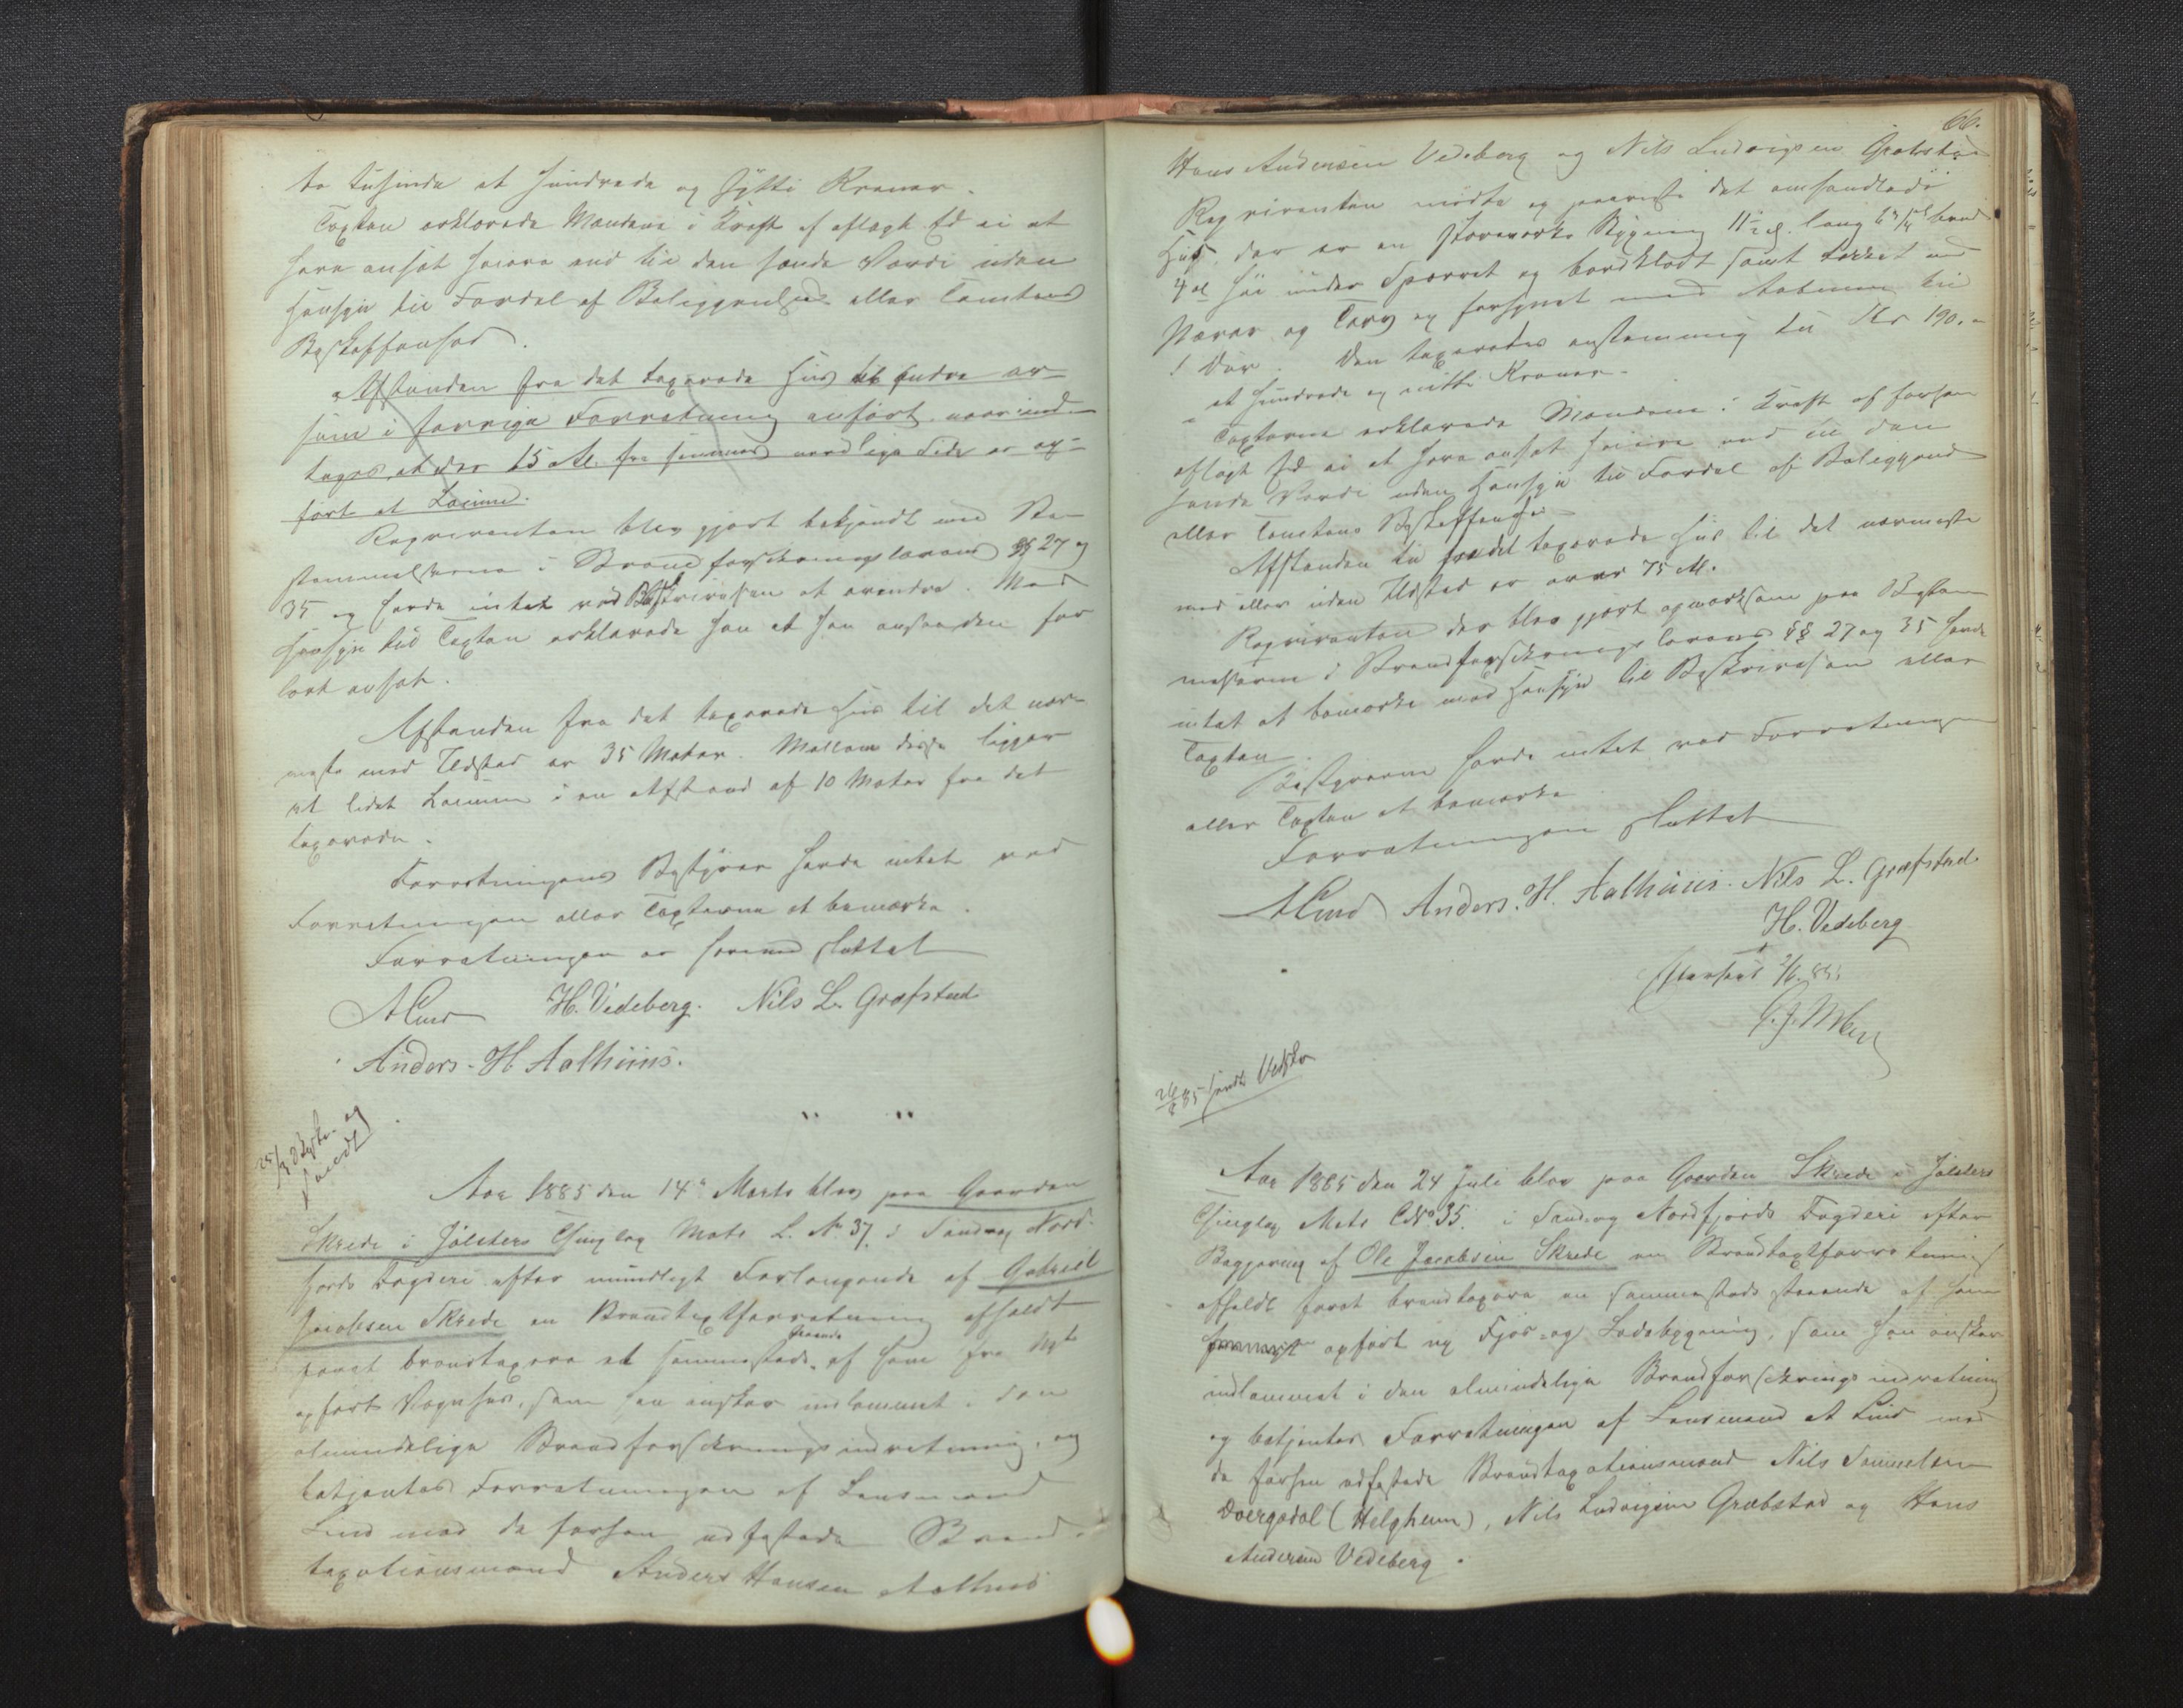 to tusinde et hundrede og sytti Kroner.
Taxten erklærede Mændene i Kraft af aflagt Ed ei at
have ansat høiere end til den sande Værdi uden
Hensyn til Fordel af Beliggenhed eller Tomtens
Beskaffenhed.
Afstanden fra det taxerede Hus til andre er
som i forrige Forretning anført undtages
at der 15 M. fra sammes nordlige Side er op-
ført et
Rekvirenten blev gjort bekjendt med Be-
stemmelserne i Brandforsikringslovens §§ 27 og
35 og havde intet ved Beskrivelsen at erindre. Med
Hensyn til Taxten erklærede han at han ansaa den for
lavt ansat.
Afstanden fra det taxerede Hus til det nær-
meste med Ildsted er 35 Meter. Mellem disse ligger
et lidet i en Afstand af 10 Meter fra det
taxerede.
Forretningens Bestyrer havde intet ved
Forretningen eller Taxterne at bemærke.
Forretningen er hermed sluttet
ALind H. Vedeberg. Nils L. Græfstad
Anders. H Aalhuus.
" "
Aar 1885 den 14de Marts blev paa Gaarden
Skrede i Jølsters Thinglag Matr. L. No 37. i Sønd og Nord-
fjords Fogderi efter mundtligt Forlangende af Gabriel
Jacobsen Skrede en Brandtaxtforretning afholdt
staaende
foret brandtaxere et sammesteds af ham fra Nyt
opført Vognhus, som han ønsker indlemmet i den
almindelige Brandforsikringsindretning, og
betjentes Forretningen af Lensmand
Lind med de forhen edfæstede Brand-
taxationsmænd Anders Hansen Aalhus
66.
Hans Andersen Vedeberg og Nils Ludvigsen Græbstad
Rekvirenten mødte og paaviste det omhandlede
Hus, der er en Stavværks Bygning 11½ al. lang bred
4 al høi under Sperret og bordklædt samt tækket med
Næver og Torv og forsynet med Aabning til
1 Dør. Den taxeredes enstemmig til Kr 190. =
et hundrede og nitti Kroner.
Taxterne erklærede Mændene i Kraft af forhen
aflagt Ed ei at have ansat høiere end til den
sande Værdi uden Hensyn til Fordel af Beliggenhed
eller Tomtens Beskaffenhed
Afstanden fra det taxerede Hus til det nærmeste
med eller uden Ildsted er over 75 M.
Rekvirenten der blev gjort opmærksom paa Bestem
melserne i Brandforsikringslovens §§ 27 og 35 havde
intet at bemærke med Hensyn til Beskrivelsen eller
Taxten.
Bestyreren havde intet ved Forretningen
eller Taxten at bemærke
Forretningen sluttet
ALind Anders. H. Aalhuus. Nils L. Græfstad
H. Vedeberg
Efterseet
Aar 1885 den 24 Juli blev paa Gaarden Skrede i Jølsters
Thinglag Matr LNo 35. i Sønd og Nordfjords Fogderi efter
Begjæring af Ole Jacobsen Skrede en Brandtaxtforretning
afholdt foret brandtaxere en sammesteds staaende af ham
opført ny Fjøs- og Ladebygning, som han ønsker
indlemmet i den almindelige Brandforsikringsindretning
og betjentes Forretningen af Lensmand A Lind med
de forhen edfæstede Brandtaxationsmænd Nils Samuelsen
Dvergedal (Helghem), Nils Ludvigsen Græbstad og Hans
Andersen Vedeberg.